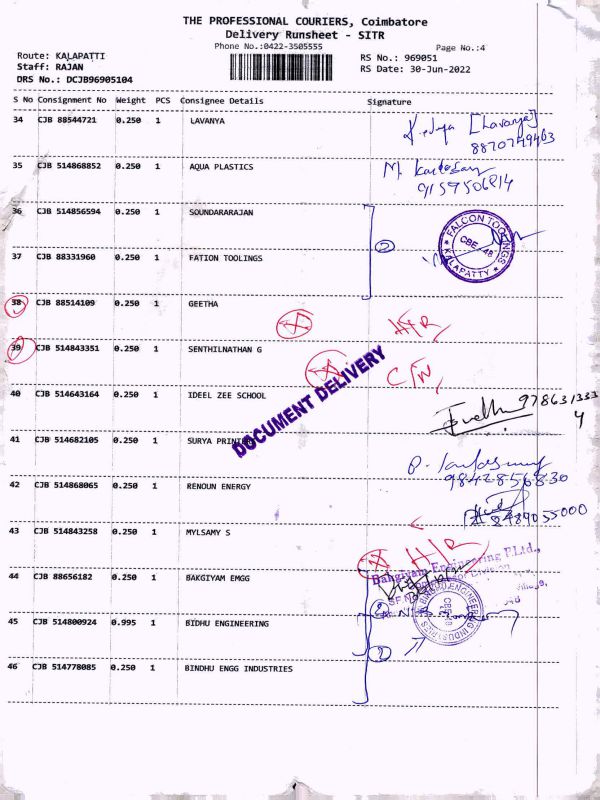 THE PROFESSIONAL COURIERS, Coimbatore
Delivery Runsheet - SITR
Phone No.:0422-3505555
Page No.:4
Route: KALAPATTI
RS No.: 969051
Staff: RAJAN
RS Date: 30-Jun-2022
DRS No.: DCJB96905104
S No Consignment No Weight PCS Consignee Details Signature
34 CJB 88544721 0.250 1 LAVANYA
[Lavanya]
8870749463
35 CJB 514868852 0.250 1 AQUA PLASTICS
9159506814
36 CJB 514856594 0.250 1 SOUNDARARAJAN
2
FALCON TOOLINGS
CBE - 48
KALAPATTY
37 CJB 88331960 0.250 1 FATION TOOLINGS
38 CJB 88514109 0.250 1 GEETHA
H/R
39 CJB 514843351 0.250 1 SENTHILNATHAN G
DOCUMENT DELIVERY
40 CJB 514643164 0.250 1 IDEEL ZEE SCHOOL
978631333
4
41 CJB 514682105 0.250 1 SURYA PRINTERS
9842856830
42 CJB 514868065 0.250 1 RENOUN ENERGY
8489055000
43 CJB 514843258 0.250 1 MYLSAMY S
H/R
Bakgiyam Engineering P.Ltd.,
44 CJB 88656182 0.250 1 BAKGIYAM EMGG
BINDHU ENGINEERING INDUSTRIES
45 CJB 514800924 0.995 1 BIDHU ENGINEERING
2
46 CJB 514778085 0.250 1 BINDHU ENGG INDUSTRIES